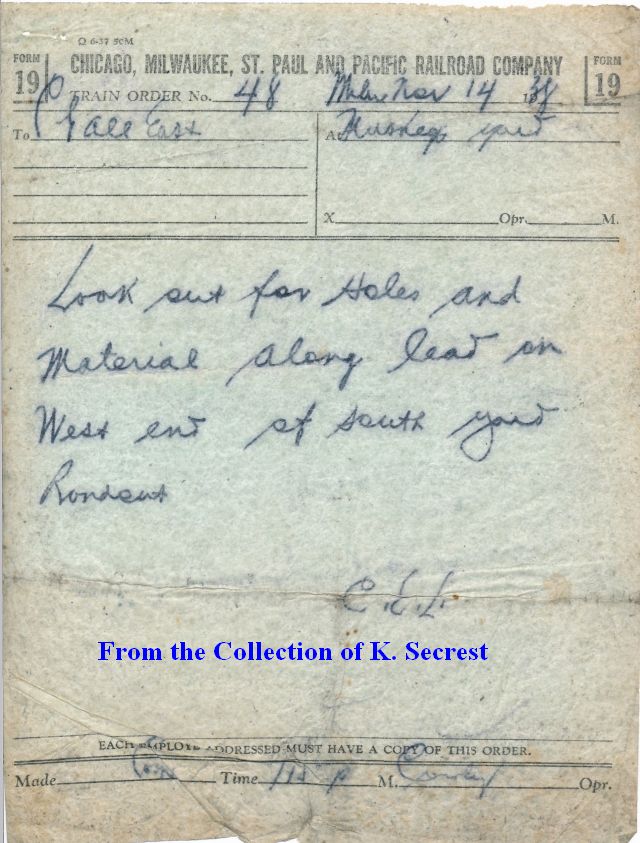 Q 6-37 50M
FORM 19 CHICAGO, MILWAUKEE, ST. PAUL AND PACIFIC RAILROAD COMPANY FORM 19
TRAIN ORDER No. 48 Nov 14 1938
To C&E All East At Muskego yard
X Opr. M.
Look out for Holes and
Material along lead on
West end of South yard
Rondout
C.E.L.
From the Collection of K. Secrest
EACH EMPLOYE ADDRESSED MUST HAVE A COPY OF THIS ORDER.
Made Com Time P M. Opr.